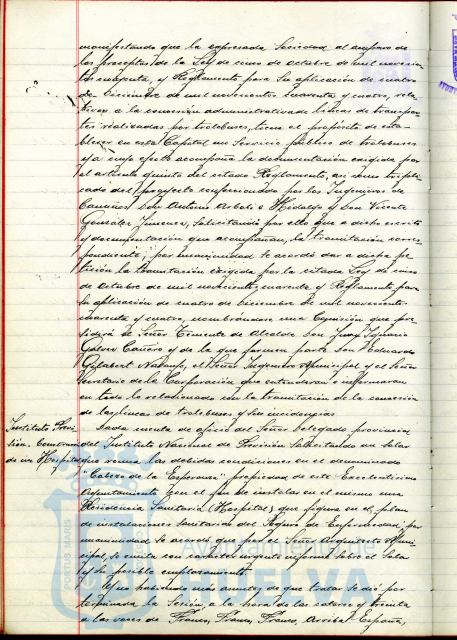 manifestando que la expresada Sociedad al amparo de
los preceptos de la Ley de cinco de Octubre de mil novecien-
tos cuarenta, y Reglamento para su aplicación de cuatro
de Diciembre de mil novecientos cuarenta y cuatro, rela-
tivos a la concesión administrativa de líneas de transpor-
tes realizadas por trolebuses, tiene el propósito de esta-
blecer en esta Capital un Servicio público de trolebuses
y a cuyo efecto acompaña la documentación exigida por
el artículo quinto del citado Reglamento, así como tripli-
cado del proyecto confeccionado por los Ingenieros de
Caminos Don Antonio Hidalgo y Don Vicente
González Jimenez, solicitando por ello que a dicho escrito
y documentación que acompañan, la tramitación corres-
pondiente; por unanimidad se acordó dar a dicha pe-
tición la tramitación exigida por la citada Ley de cinco
de Octubre de mil novecientos cuarenta y Reglamento para
la aplicación de cuatro de Diciembre de mil novecientos
cuarenta y cuatro, nombrándose una Comisión que pre-
sidirá el Señor Teniente de Alcalde Don Juan
Galvez Cañero y de la que formen parte Don Eduardo
Gilabert el Señor Ingeniero Municipal y el Señor
Secretario de la Corporación que entenderán e informaran
en todo lo relacionado con la tramitación de la concesión
de las líneas de trolebuses y sus incidencias.
Instituto Previ-
sión. Construcción
de un Hospital
Dada cuenta de oficio del Señor Delegado provincial
del Instituto Nacional de Previsión solicitando un solar
que reuna las debidas condiciones en el denominado
"Cabezo de la Esperanza" propiedad de este Excelentísimo
Ayuntamiento con el fin de instalar en el mismo una
Residencia Sanitaria (Hospital) que figura en el plan
de instalaciones sanitarias del Seguro de Enfermedad; por
unanimidad se acordó que por el Señor Arquitecto Muni-
cipal, se emita con carácter urgente informe sobre el Solar
y su posible emplazamiento.
Y no habiendo más asuntos de que tratar se dió por
terminada la Sesión, a la hora de las catorce y treinta
a las voces de Franco, Franco, Franco, Arriba España,
PORTUS MARIS
Ayuntamiento de
HUELVA